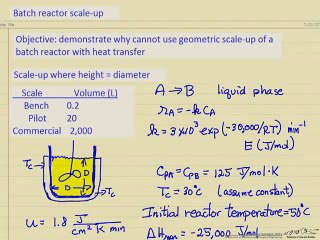 Batch reactor scale-up
Objective: demonstrate why cannot use geometric scale-up of a
batch reactor with heat transfer
Scale-up where height = diameter
Scale Volume (L)
Bench 0.2
Pilot 20
Commercial 2,000
Tc
D
D
Tc
U = 1.8 J / cm² K min
A → B liquid phase
rA = -k CA
k = 3 x10³ exp(-30,000/RT) min⁻¹
E (J/mol)
CPA = CPB = 125 J/mol·K
Tc = 30°C (assume constant)
Initial reactor temperature = 50°C
ΔHrxn = -25,000 J/mol